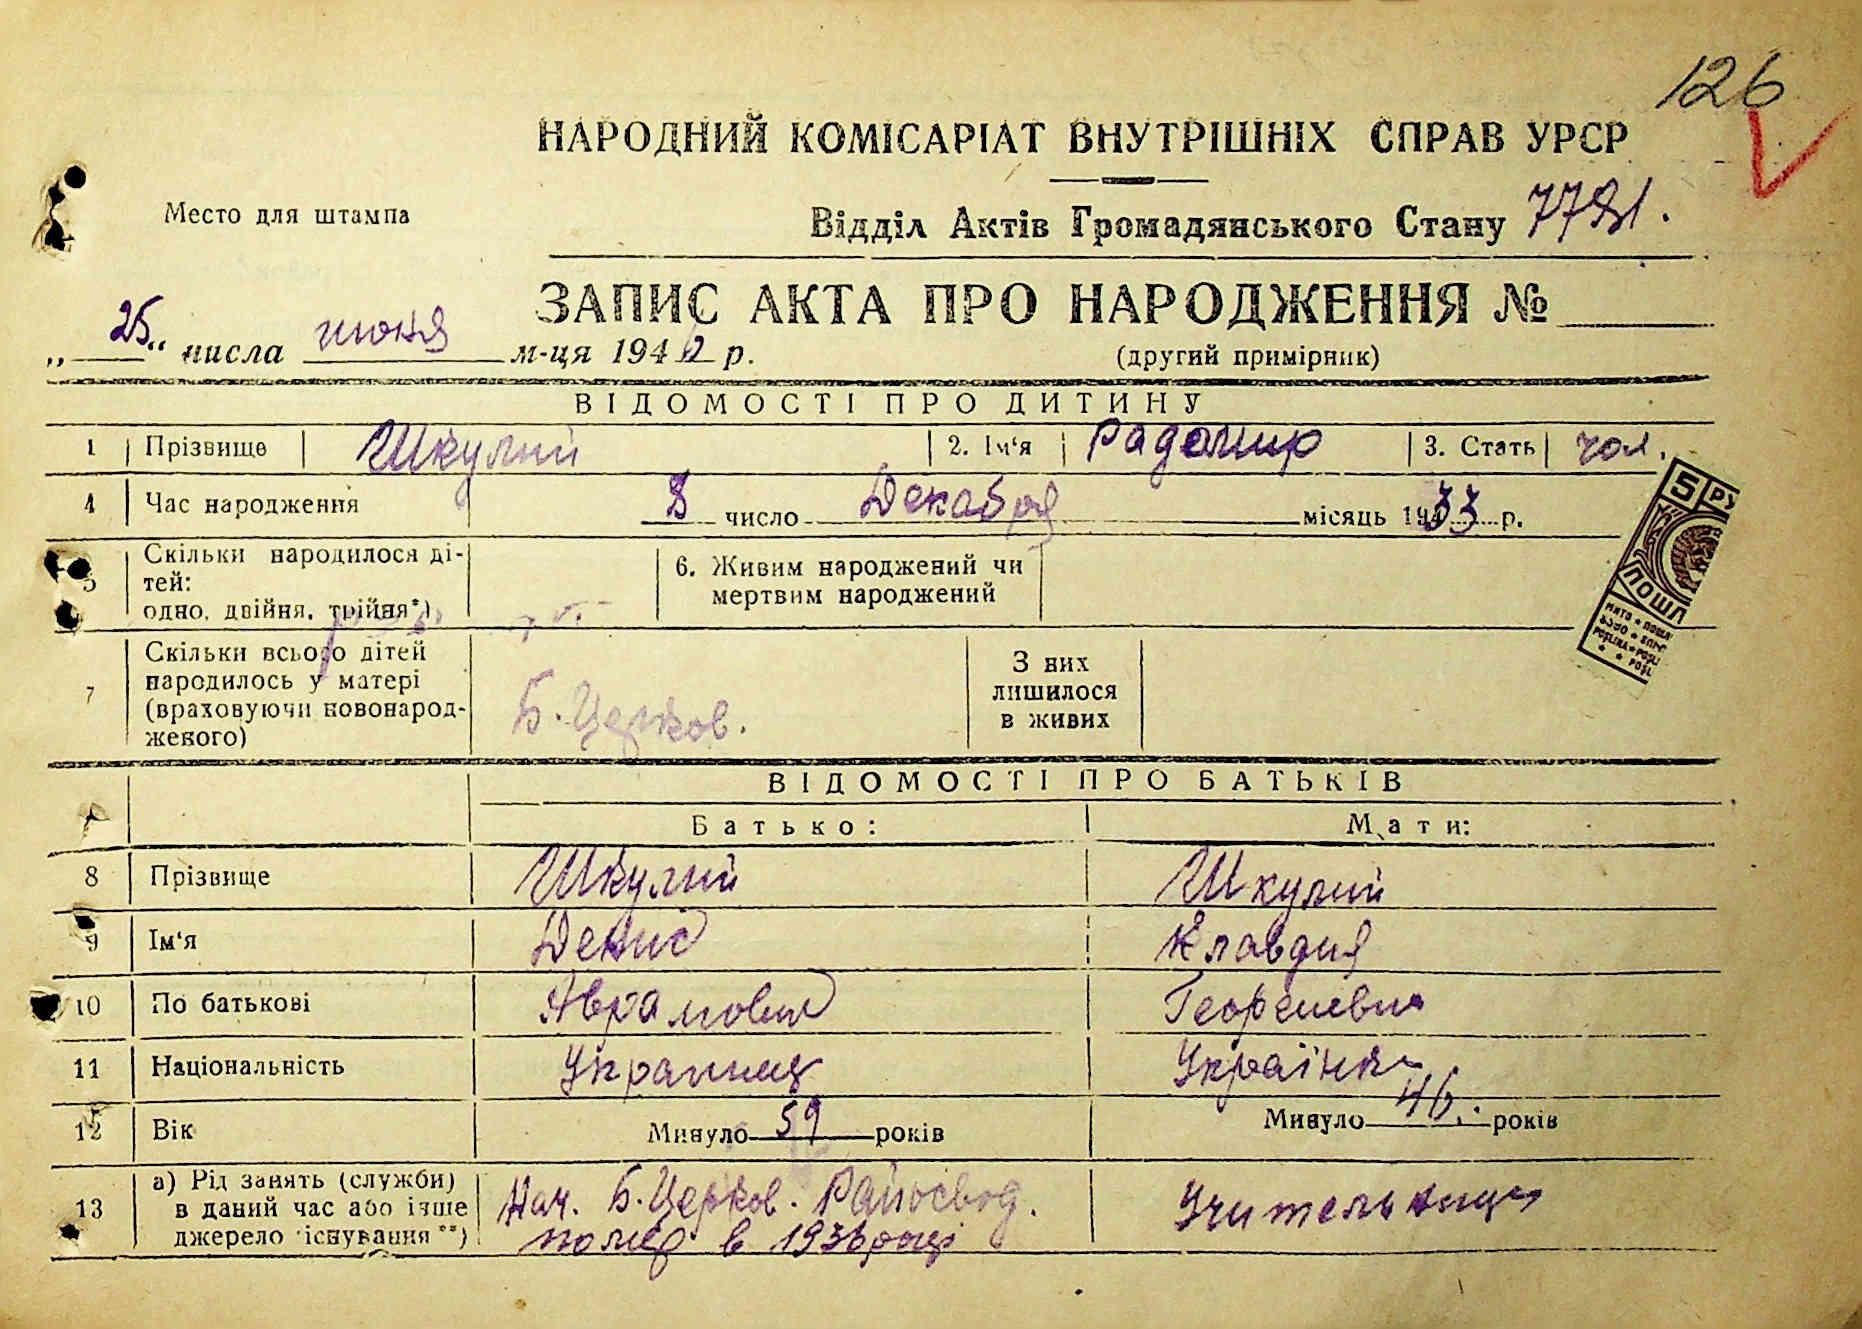 126
НАРОДНИЙ КОМІСАРІАТ ВНУТРІШНІХ СПРАВ УРСР
Место для штампа
Відділ Актів Громадянського Стану
ЗАПИС АКТА ПРО НАРОДЖЕННЯ №
„25“ числа июня м-ця 1946 р.
(другий примірник)
ВІДОМОСТІ ПРО ДИТИНУ
1 Прізвище Шкулий 2. Ім‘я Радомир 3. Стать чол.
4 Час народження 8 число Декабря місяць 1933 р.
5 Скільки народилося ді-
тей:
одно, двійня, трійня*)
6. Живим народжений чи
мертвим народжений
5 РУ
ПОШЛ
7 Скільки всього дітей
народилось у матері
(враховуючи новонарод-
женого)
Б. Церков.
З них
лишилося
в живих
ВІДОМОСТІ ПРО БАТЬКІВ
Батько: Мати:
8 Прізвище Шкулий Шкулий
9 Ім‘я Денис Клавдия
10 По батькові Аврамович Георгиевна
11 Національність Украинец Українка
12 Вік Минуло 59 років Минуло 46 років
13 а) Рід занять (служби)
в даний час або інше
джерело існування **)
Нач. Б. Церков.
помер в 1936 році
Учительница